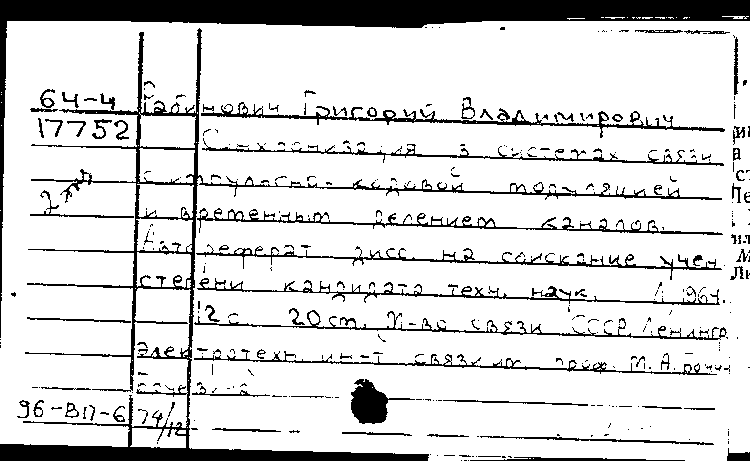 64-4 Рабинович Григорий Владимирович
17752 Синхронизация в системах связи
2 с импульсно-кодовой модуляцией
и временным делением каналов.
Автореферат дисс. на соискание учен
степени кандидата техн. наук. Л 1964.
12 с 20 см. М-во связи СССР. Ленингр
электротехн. ин-т связи им. проф. М.А. Бонч-
Бруевича
96-ВП-6 74/12